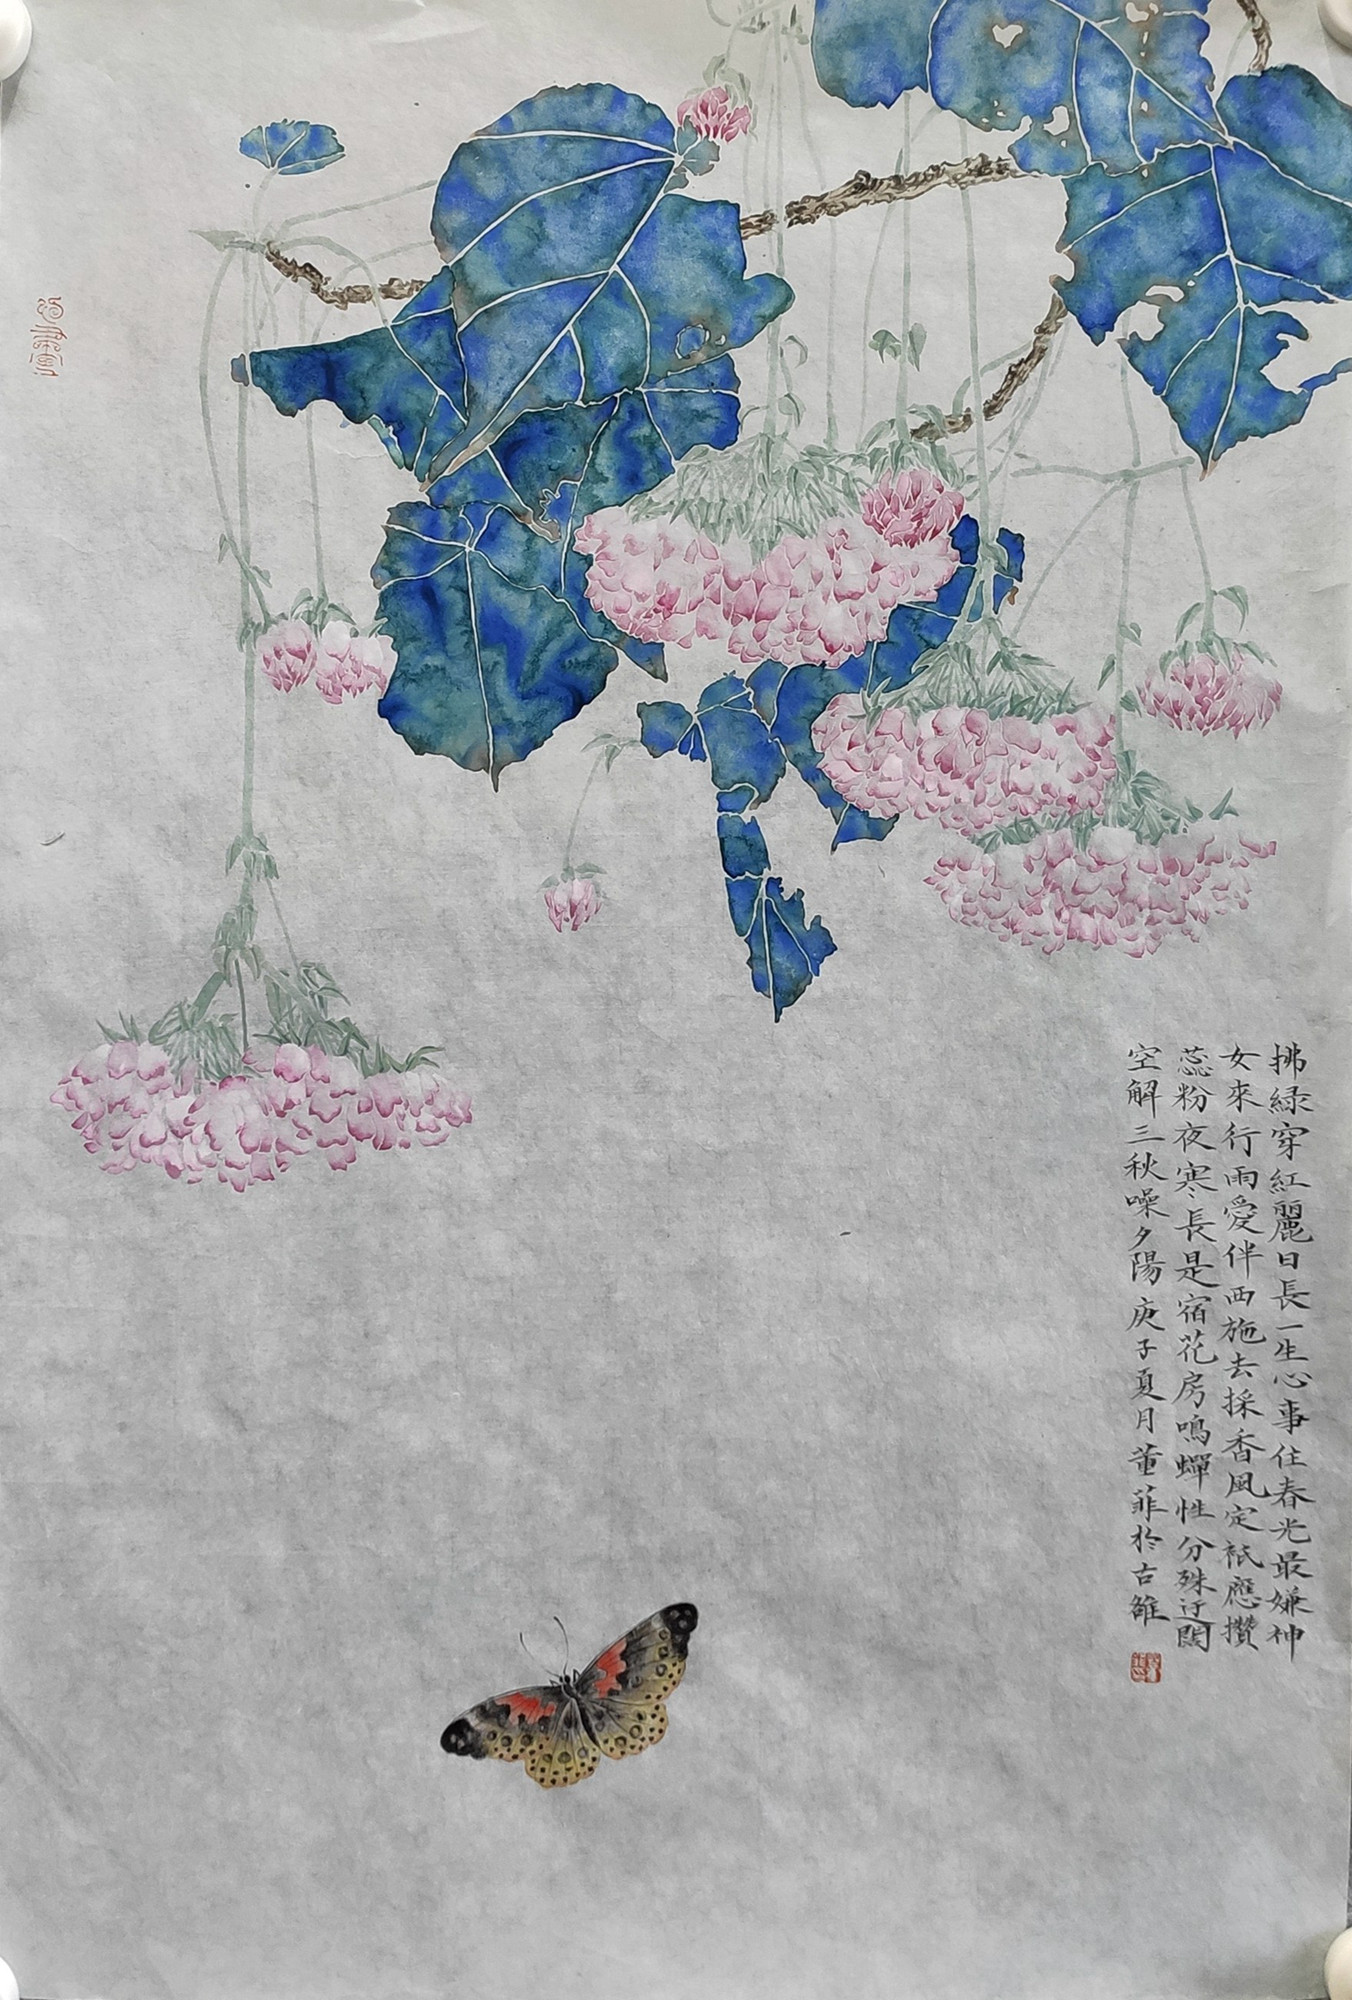 拂綠穿紅麗日長一生心事住春光最嫌神
女來行雨愛伴西施去採香風定祇應攢
蕊粉夜寒長是宿花房鳴蟬性分殊迂闊
空解三秋噪夕陽庚子夏月董菲於古雒